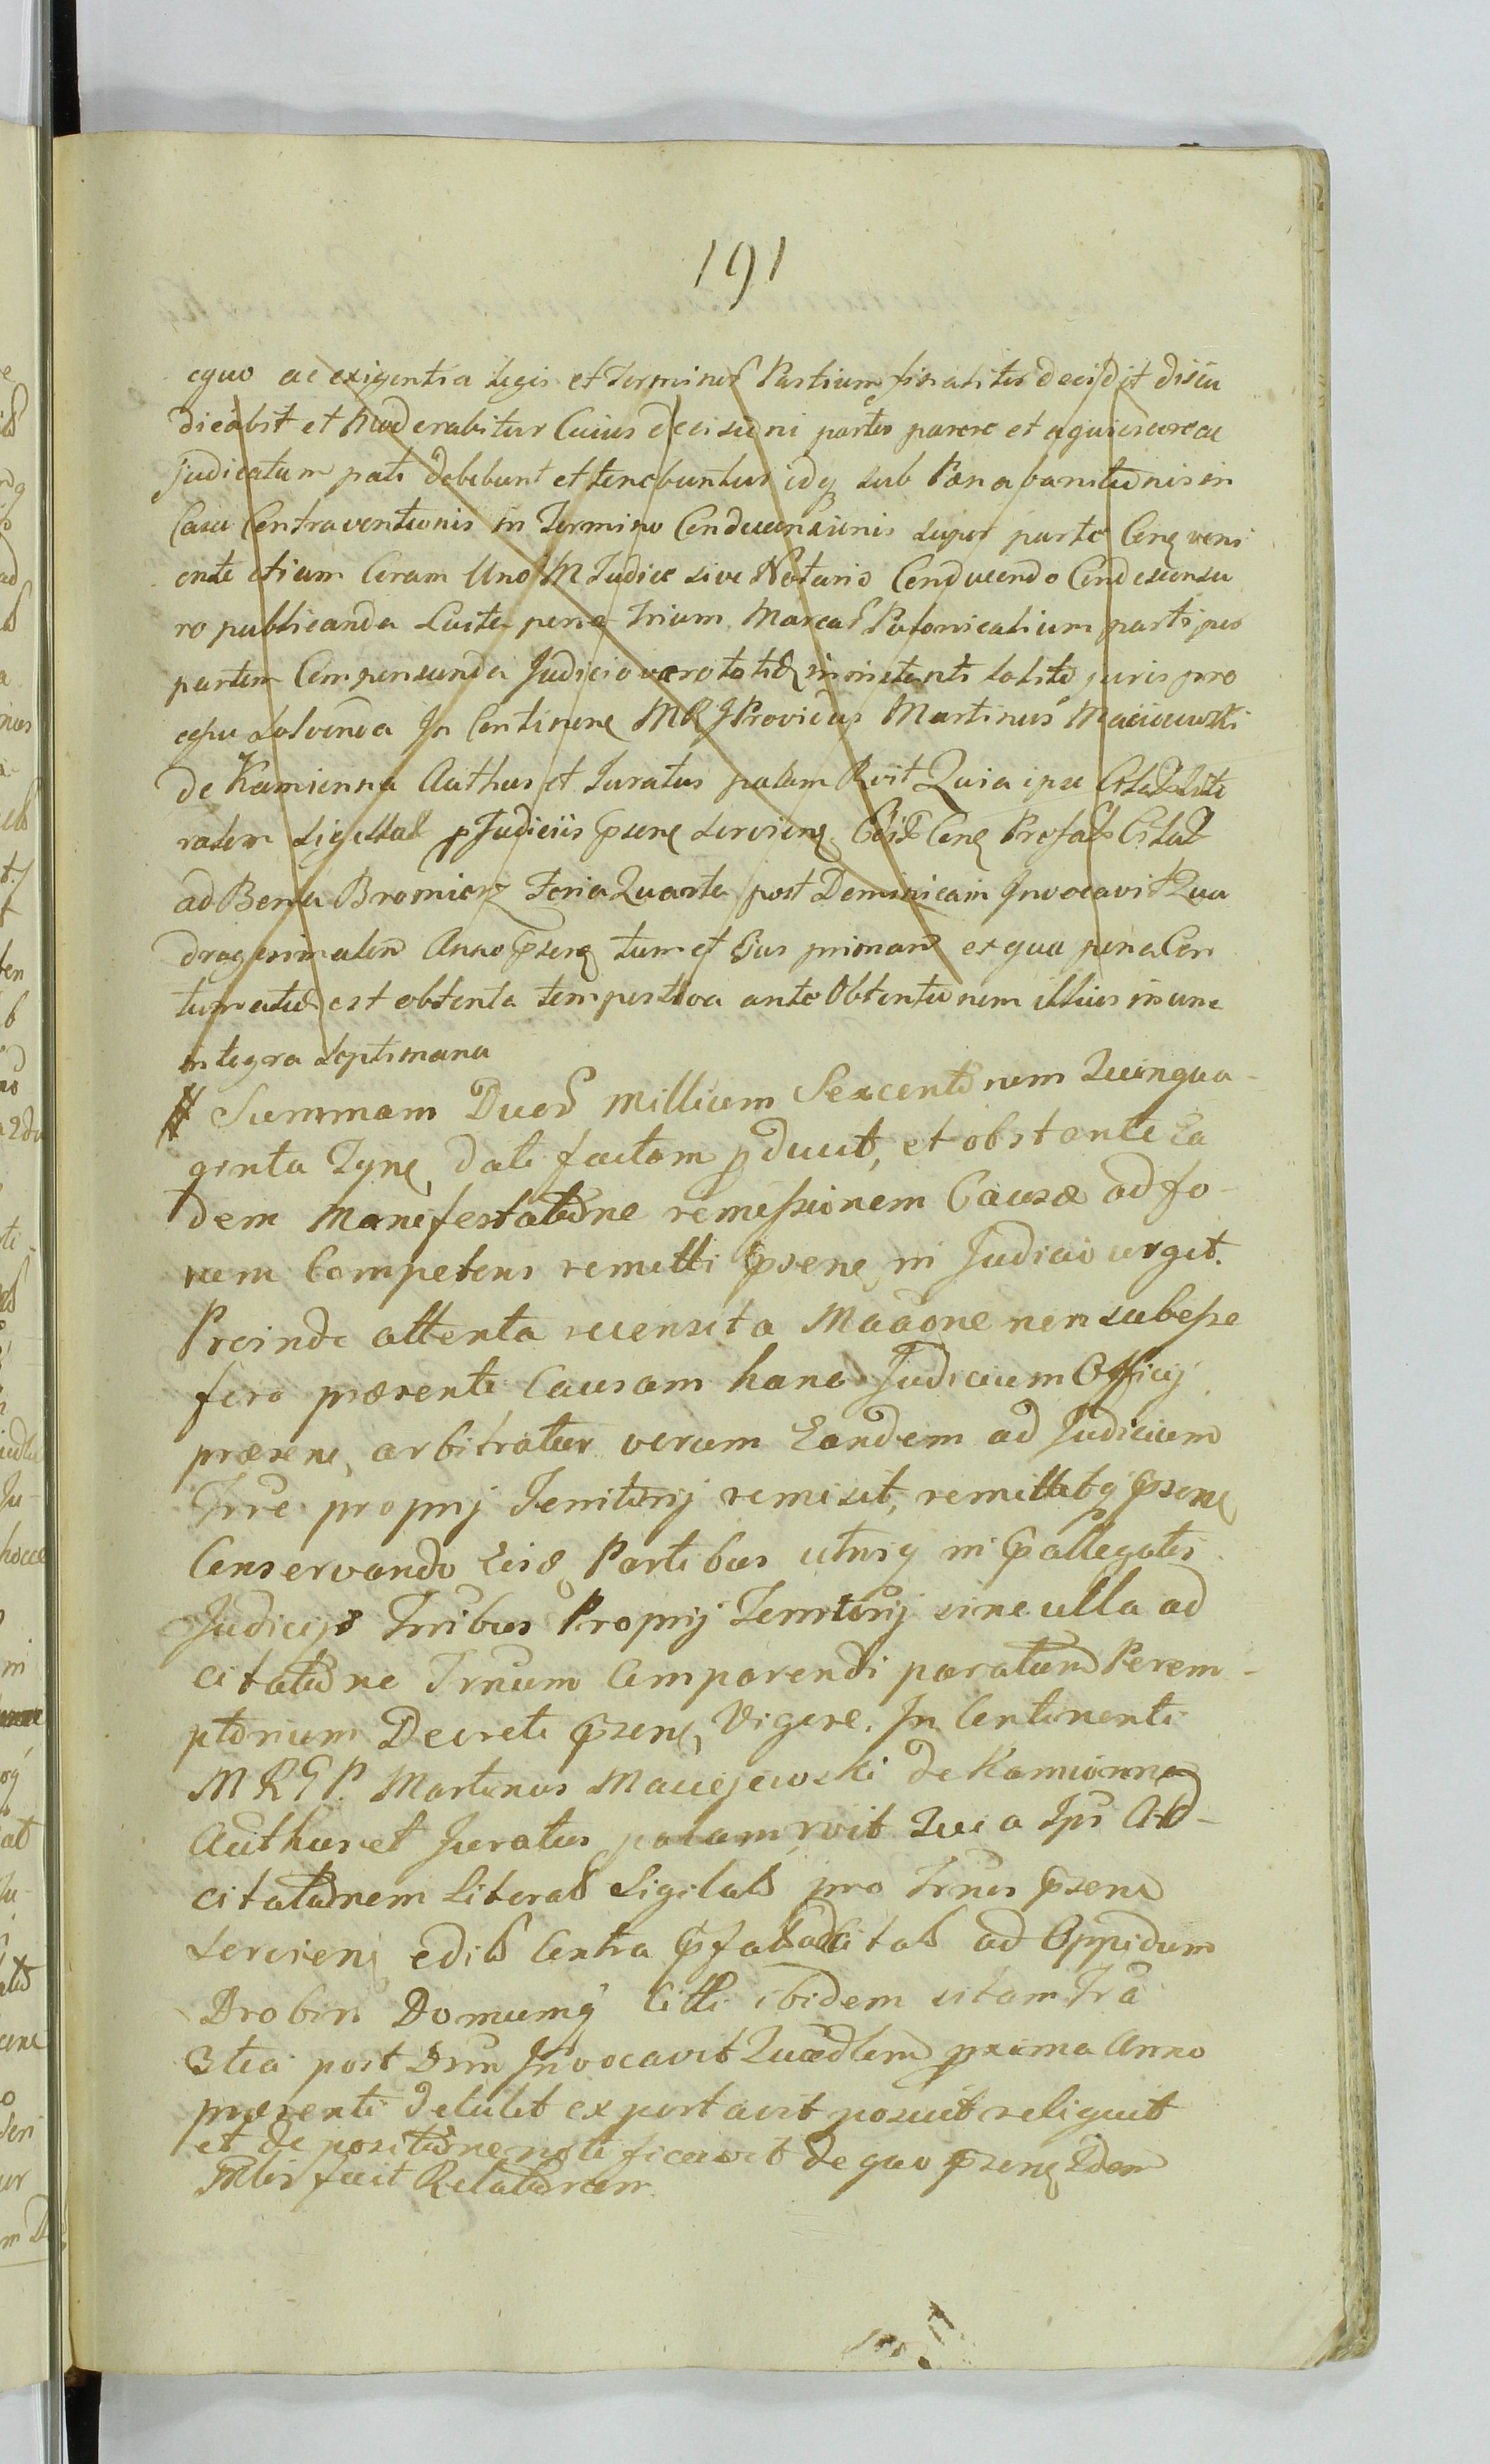 191
equo ac exigentia legis et Terminos Partium finaliter decidet diiu
dicabit et Moderabitur Cuius decisioni partes parere et aquiescere ac
Judicatum pati debebunt et tenebuntur idq sub Pæna banitionis in
Casu Contraventionis in Termino Condescensionis super parte Conveni
ente etiam Coram Uno M Judice sive Notario Conducendo Condescensu
ro publicanda Luita pena Trium Marcar Polonicalium parti per
partem Compensanda Judicio vero totid solito juris pro
cessu Solvenda In Continen MRGProvidus Martinus Maciciewski
de Kamienna Authus et Juratus palam Rvit Quia ipse Citat Lite
ralem Sigillat p Judiciis Psen Servien Edit Con Prefat Citat
ad Bona Bromierz Feria Quarta post Dominicam Invocavit Qua
dragesimalem Anno Psen tum et Ejus primam ex qua pena Con
tumatia est obtenta tempestiva ante Obtentionem illius in una
integra Septimana
# Summam Duor millium Sexcentorum Quinqua-
ginta Tyn, dati factam pduut, et obstante ea
dem Manifestatione remissionem Causæ ad fo-
rum Competens remitti Psens in Judicio urget.
Proinde attenta recensita Maaone non subesse
foro præsenti Causam hanc Judicium Officij
præsens, arbitratur verum Eandem ad Judicium
Trre proprij Territorij remisit, remittitq Psens
Conservando Eisd Partibus utrisq in Pallegatis
Judicijs Trribus Proprij Territorij sine ulla ad
citatione Trnum Comparendi paratum Perem-
ptorium Decreti Psens, Vigore. In Continenti
M R G P. Martinus Maciejewski de Kamionna
Authus et Juratus palam rvit Quia Ips Ad-
citationem Literal Sigilat pro Trnis Psens
Servien edit Contra Pfat adcitat ad Oppidum
Drobin Domumq Citti ibidem sitam Fra
3tia post Dnm Invocavit Quadlem pxima Anno
præsenti detulit exportavit posuit reliquit
et de positione notificavit de quo psens Idem
Mtlis fecit Relationem.